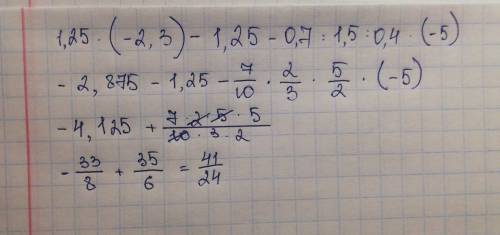 1,25 · (-2,3) - 1,25 - 0,7 : 1,5 : 0,4 · (-5)
- 2,875 - 1,25 - 7/10 · 2/3 · 5/2 · (-5)
- 4,125 + 7·2·5·5/10·3·2
- 33/8 + 35/6 = 41/24